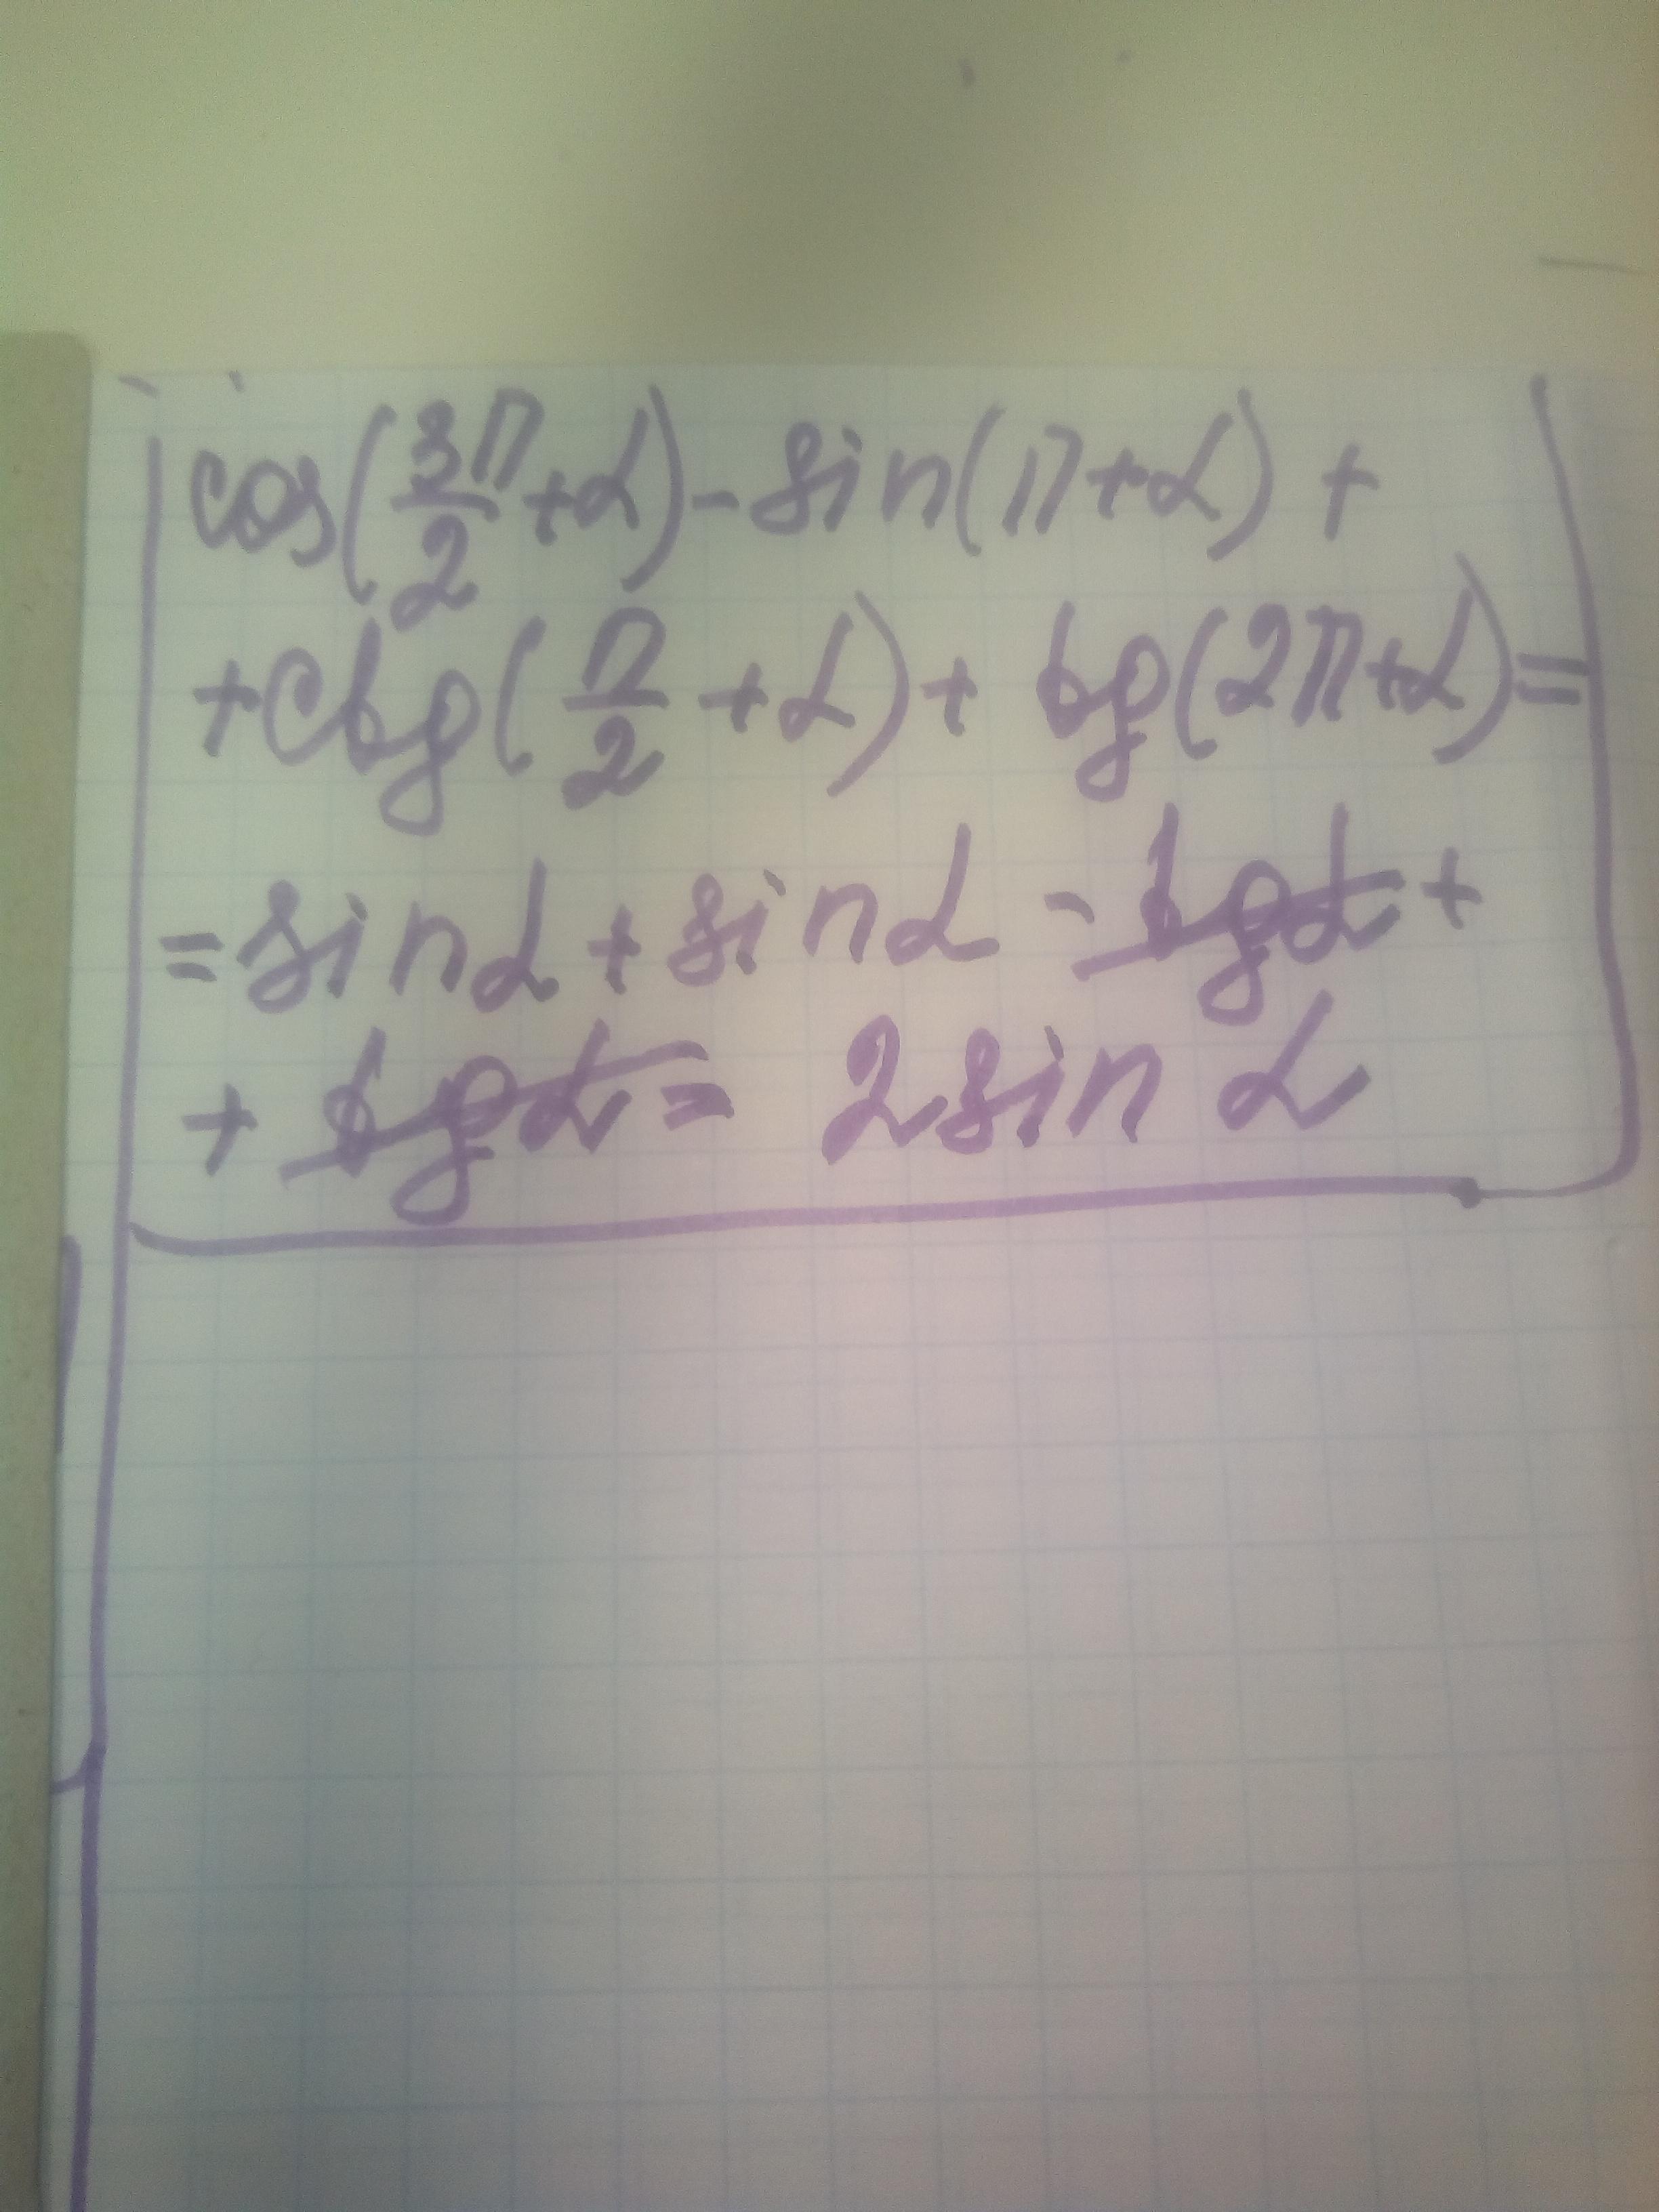 cos(3π/2+α)-sin(π+α)+
+ctg(π/2+α)+tg(2π+α)=
=sinα+sinα-tgα+
+tgα=2sinα